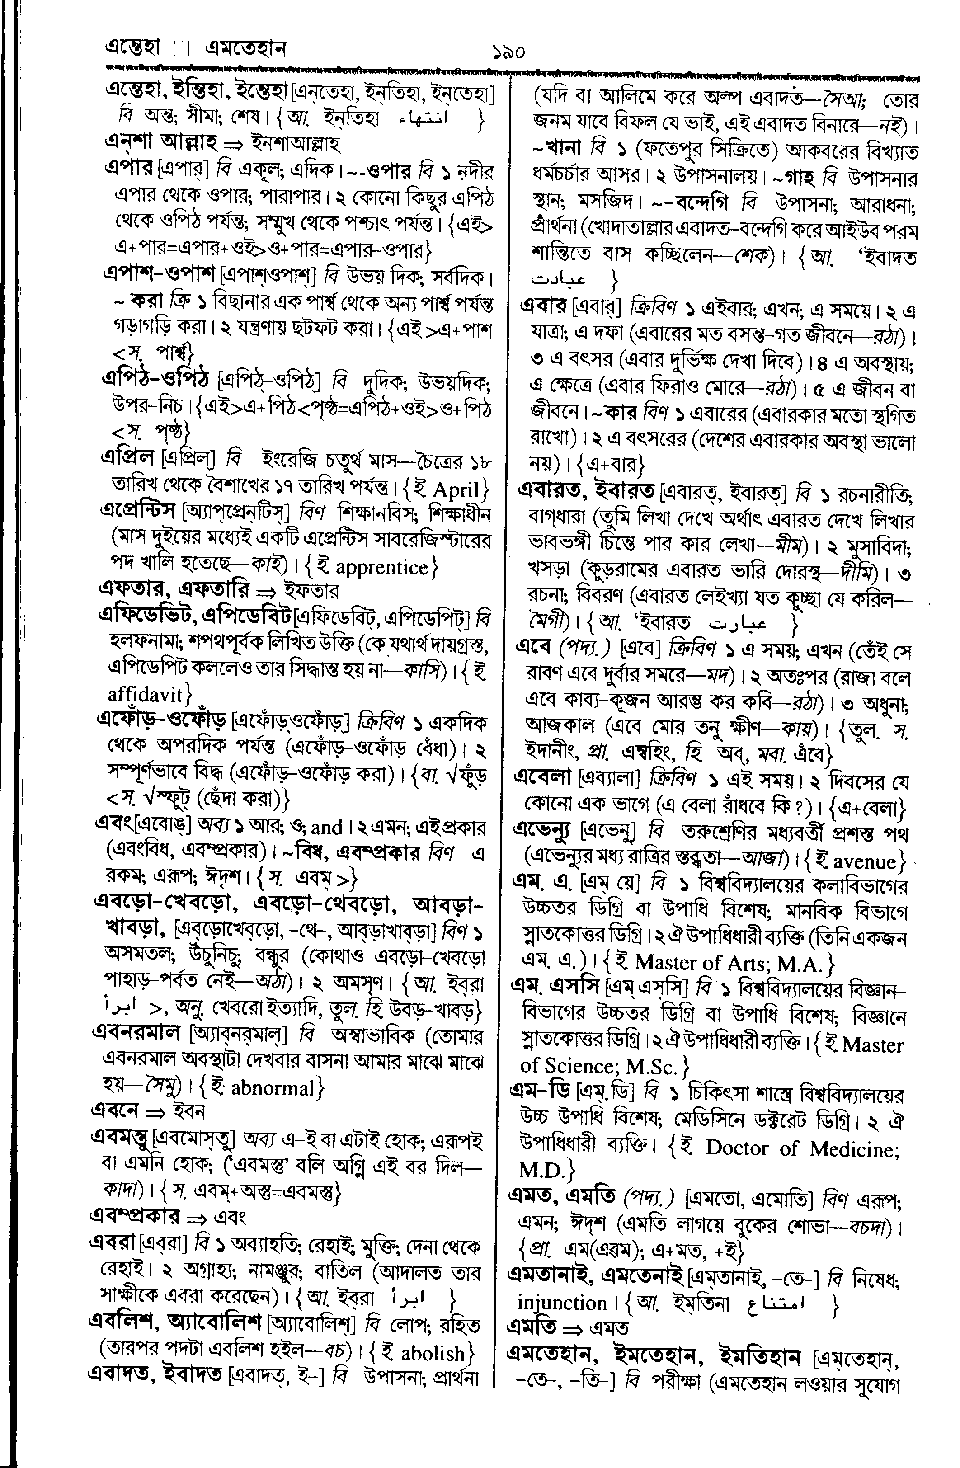 এন্তেহা | এমতেহান
১৯০
এন্তেহা, ইন্তিহা, ইন্তেহা [এন্‌তেহা, ইন্‌তিহা, ইন্‌তেহা]
বি অন্ত; সীমা; শেষ। {আ. ইন্‌তিহা انتهاء }
এন্‌শা আল্লাহ ⇒ ইনশাআল্লাহ
এপার [এপার্] বি একূল; এদিক। ~-ওপার বি ১ নদীর
এপার থেকে ওপার; পারাপার। ২ কোনো কিছুর এপিঠ
থেকে ওপিঠ পর্যন্ত; সম্মুখ থেকে পশ্চাৎ পর্যন্ত। {এই>
এ+পার=এপার+ওই>ও+পার=এপার-ওপার}
এপাশ-ওপাশ [এপাশ্‌ওপাশ্] বি উভয় দিক; সর্বদিক।
~ করা ক্রি ১ বিছানার এক পার্শ্ব থেকে অন্য পার্শ্ব পর্যন্ত
গড়াগড়ি করা। ২ যন্ত্রণায় ছটফট করা। {এই >এ+পাশ
<স. পার্শ্ব}
এপিঠ-ওপিঠ [এপিঠ্-ওপিঠ্] বি দুদিক; উভয়দিক;
উপর-নিচ। {এই>এ+পিঠ<পৃষ্ঠ=এপিঠ+ওই>ও+পিঠ
<স. পৃষ্ঠ}
এপ্রিল [এপ্রিল্] বি ইংরেজি চতুর্থ মাস—চৈত্রের ১৮
তারিখ থেকে বৈশাখের ১৭ তারিখ পর্যন্ত। {ই April}
এপ্রেন্টিস [অ্যাপ্‌প্রেন্‌টিস্] বিণ শিক্ষানবিস; শিক্ষাধীন
(মাস দুইয়ের মধ্যেই একটি এপ্রেন্টিস সাবরেজিস্টারের
পদ খালি হতেছে—কাই)। {ই apprentice}
এফতার, এফতারি ⇒ ইফতার
এফিডেভিট, এপিডেবিট [এফিডেবিট্, এপিডেপিট্] বি
হলফনামা; শপথপূর্বক লিখিত উক্তি (কে যথার্থ দায়গ্রস্ত,
এপিডেপিট কললেও তার সিদ্ধান্ত হয় না—কাসি)। {ই
affidavit}
এফোঁড়-ওফোঁড় [এফোঁড়্‌ওফোঁড়্] ক্রিবিণ ১ একদিক
থেকে অপরদিক পর্যন্ত (এফোঁড়-ওফোঁড় বেঁধা)। ২
সম্পূর্ণভাবে বিদ্ধ (এফোঁড়-ওফোঁড় করা)। {বা. √ফুঁড়
<স. √স্ফুট্ (ছেঁদা করা)}
এবং [এবোঙ্] অব্য ১ আর; ও; and। ২ এমন; এইপ্রকার
(এবংবিধ, এবম্প্রকার)। ~বিধ, এবম্প্রকার বিণ এ
রকম; এরূপ; ঈদৃশ। {স. এবম্ >}
এবড়ো-খেবড়ো, এবড়ো-থেবড়ো, আবড়া-
খাবড়া, [এব্‌ড়োখেব্‌ড়ো, -থে-, আব্‌ড়াখাব্‌ড়া] বিণ ১
অসমতল; উঁচুনিচু; বন্ধুর (কোথাও এবড়ো-খেবড়ো
পাহাড়-পর্বত নেই—অঠা)। ২ অমসৃণ। {আ. ইব্‌রা
ابرأ >, অনু. খেবরো ইত্যাদি, তুল. হি উবড়-খাবড়}
এবনরমাল [অ্যাব্‌নর্‌মাল্] বি অস্বাভাবিক (তোমার
এবনরমাল অবস্থাটা দেখবার বাসনা আমার মাঝে মাঝে
হয়—সৈমু)। {ই abnormal}
এবনে ⇒ ইবন
এবমস্তু [এবমোস্‌তু] অব্য এ-ই বা এটাই হোক; এরূপই
বা এমনি হোক; ('এবমস্তু' বলি অগ্নি এই বর দিল—
কাদা)। {স. এবম্+অস্তু=এবমস্তু}
এবম্প্রকার ⇒ এবং
এবরা [এব্‌রা] বি ১ অব্যাহতি; রেহাই; মুক্তি; দেনা থেকে
রেহাই। ২ অগ্রাহ্য; নামঞ্জুর; বাতিল (আদালত তার
সাক্ষীকে এবরা করেছেন)। {আ. ইব্‌রা ابرأ }
এবলিশ, অ্যাবোলিশ [অ্যাবোলিশ্] বি লোপ; রহিত
(তারপর পদটা এবলিশ হইল—বচ)। {ই abolish}
এবাদত, ইবাদত [এবাদত্, ই-] বি উপাসনা; প্রার্থনা
(যদি বা আলিমে করে অল্প এবাদত—সৈআ; তোর
জনম যাবে বিফল যে ভাই, এই এবাদত বিনারে—নই)।
~খানা বি ১ (ফতেপুর সিক্রিতে) আকবরের বিখ্যাত
ধর্মচর্চার আসর। ২ উপাসনালয়। ~গাহ বি উপাসনার
স্থান; মসজিদ। ~-বন্দেগি বি উপাসনা; আরাধনা;
প্রার্থনা (খোদাতাল্লার এবাদত-বন্দেগি করে আইউব পরম
শান্তিতে বাস কচ্ছিলেন—শেক)। {আ. 'ইবাদত
عبادت }
এবার [এবার্] ক্রিবিণ ১ এইবার; এখন; এ সময়ে। ২ এ
যাত্রা; এ দফা (এবারের মত বসন্ত-গত জীবনে—রঠা)।
৩ এ বৎসর (এবার দুর্ভিক্ষ দেখা দিবে)। ৪ এ অবস্থায়;
এ ক্ষেত্রে (এবার ফিরাও মোরে—রঠা)। ৫ এ জীবন বা
জীবনে। ~কার বিণ ১ এবারের (এবারকার মতো স্থগিত
রাখো)। ২ এ বৎসরের (দেশের এবারকার অবস্থা ভালো
নয়)। {এ+বার}
এবারত, ইবারত [এবারত্, ইবারত্] বি ১ রচনারীতি;
বাগ্‌ধারা (তুমি লিখা দেখে অর্থাৎ এবারত দেখে লিখার
ভাবভঙ্গী চিন্তে পার কার লেখা—মীম)। ২ মুসাবিদা;
খসড়া (কুড়রামের এবারত ভারি দোরস্থ—দীমি)। ৩
রচনা; বিবরণ (এবারত লেইখ্যা যত কুচ্ছা যে করিল—
মৈগী)। {আ. 'ইবারত عبارت }
এবে (পদ্য.) [এবে] ক্রিবিণ ১ এ সময়; এখন (তেঁই সে
রাবণ এবে দুর্বার সমরে—মদ)। ২ অতঃপর (রাজা বলে
এবে কাব্য-কূজন আরম্ভ কর কবি—রঠা)। ৩ অধুনা;
আজকাল (এবে মোর তনু ক্ষীণ—কায়)। {তুল. স.
ইদানীং, প্রা. এম্বহিং, হি অব্, মবা. এঁবে}
এবেলা [এব্যালা] ক্রিবিণ ১ এই সময়। ২ দিবসের যে
কোনো এক ভাগে (এ বেলা রাঁধবে কি?)। {এ+বেলা}
এভেন্যু [এভেনু] বি তরুশ্রেণির মধ্যবর্তী প্রশস্ত পথ
(এভেন্যুর মধ্য রাত্রির স্তব্ধতা—আজা)। {ই avenue}
এম. এ. [এম্ য়ে] বি ১ বিশ্ববিদ্যালয়ের কলাবিভাগের
উচ্চতর ডিগ্রি বা উপাধি বিশেষ; মানবিক বিভাগে
স্নাতকোত্তর ডিগ্রি। ২ ঐ উপাধিধারী ব্যক্তি (তিনি একজন
এম. এ.)। {ই Master of Arts; M.A.}
এম. এসসি [এম্ এস্‌সি] বি ১ বিশ্ববিদ্যালয়ের বিজ্ঞান-
বিভাগের উচ্চতর ডিগ্রি বা উপাধি বিশেষ; বিজ্ঞানে
স্নাতকোত্তর ডিগ্রি। ২ ঐ উপাধিধারী ব্যক্তি। {ই Master
of Science; M.Sc.}
এম-ডি [এম্.ডি] বি ১ চিকিৎসা শাস্ত্রে বিশ্ববিদ্যালয়ের
উচ্চ উপাধি বিশেষ; মেডিসিনে ডক্টরেট ডিগ্রি। ২ ঐ
উপাধিধারী ব্যক্তি। {ই Doctor of Medicine;
M.D.}
এমত, এমতি (পদ্য.) [এমতো, এমোতি] বিণ এরূপ;
এমন; ঈদৃশ (এমতি লাগয়ে বুকের শোভা—বচদা)।
{প্রা. এম(এৱম); এ+মত, +ই}
এমতানাই, এমতেনাই [এম্‌তানাই, -তে-] বি নিষেধ;
injunction। {আ. ইম্‌তিনা امتناع }
এমতি ⇒ এমত
এমতেহান, ইমতেহান, ইমতিহান [এম্‌তেহান্,
-তে-, -তি-] বি পরীক্ষা (এমতেহান লওয়ার সুযোগ